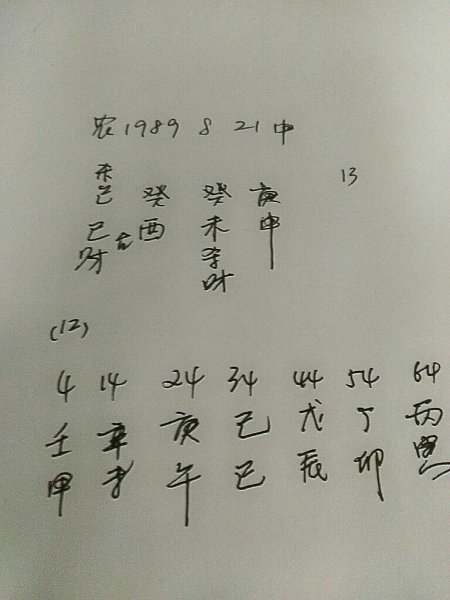 农1989 8 21 中
杀 13
己 癸 癸 庚
巳 合 酉 未 申
财 杀
财
(12)
4 14 24 34 44 54 64
壬 辛 庚 己 戊 丁 丙
申 未 午 巳 辰 卯 寅